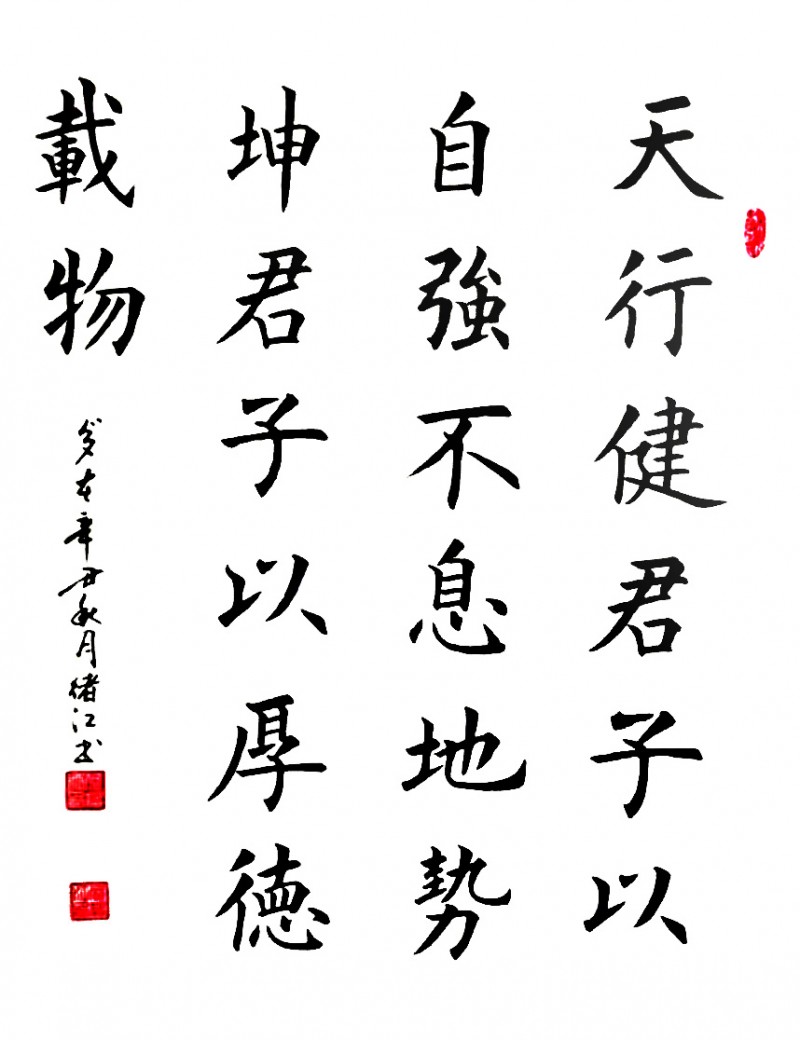 天行健君子以
自強不息地势
坤君子以厚德
載物
岁在辛丑秋月緒江书